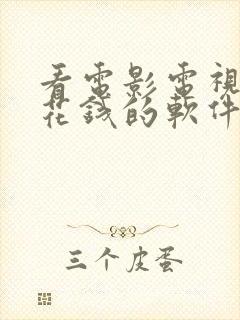 看電影電視
花錢的軟件
三个皮蛋